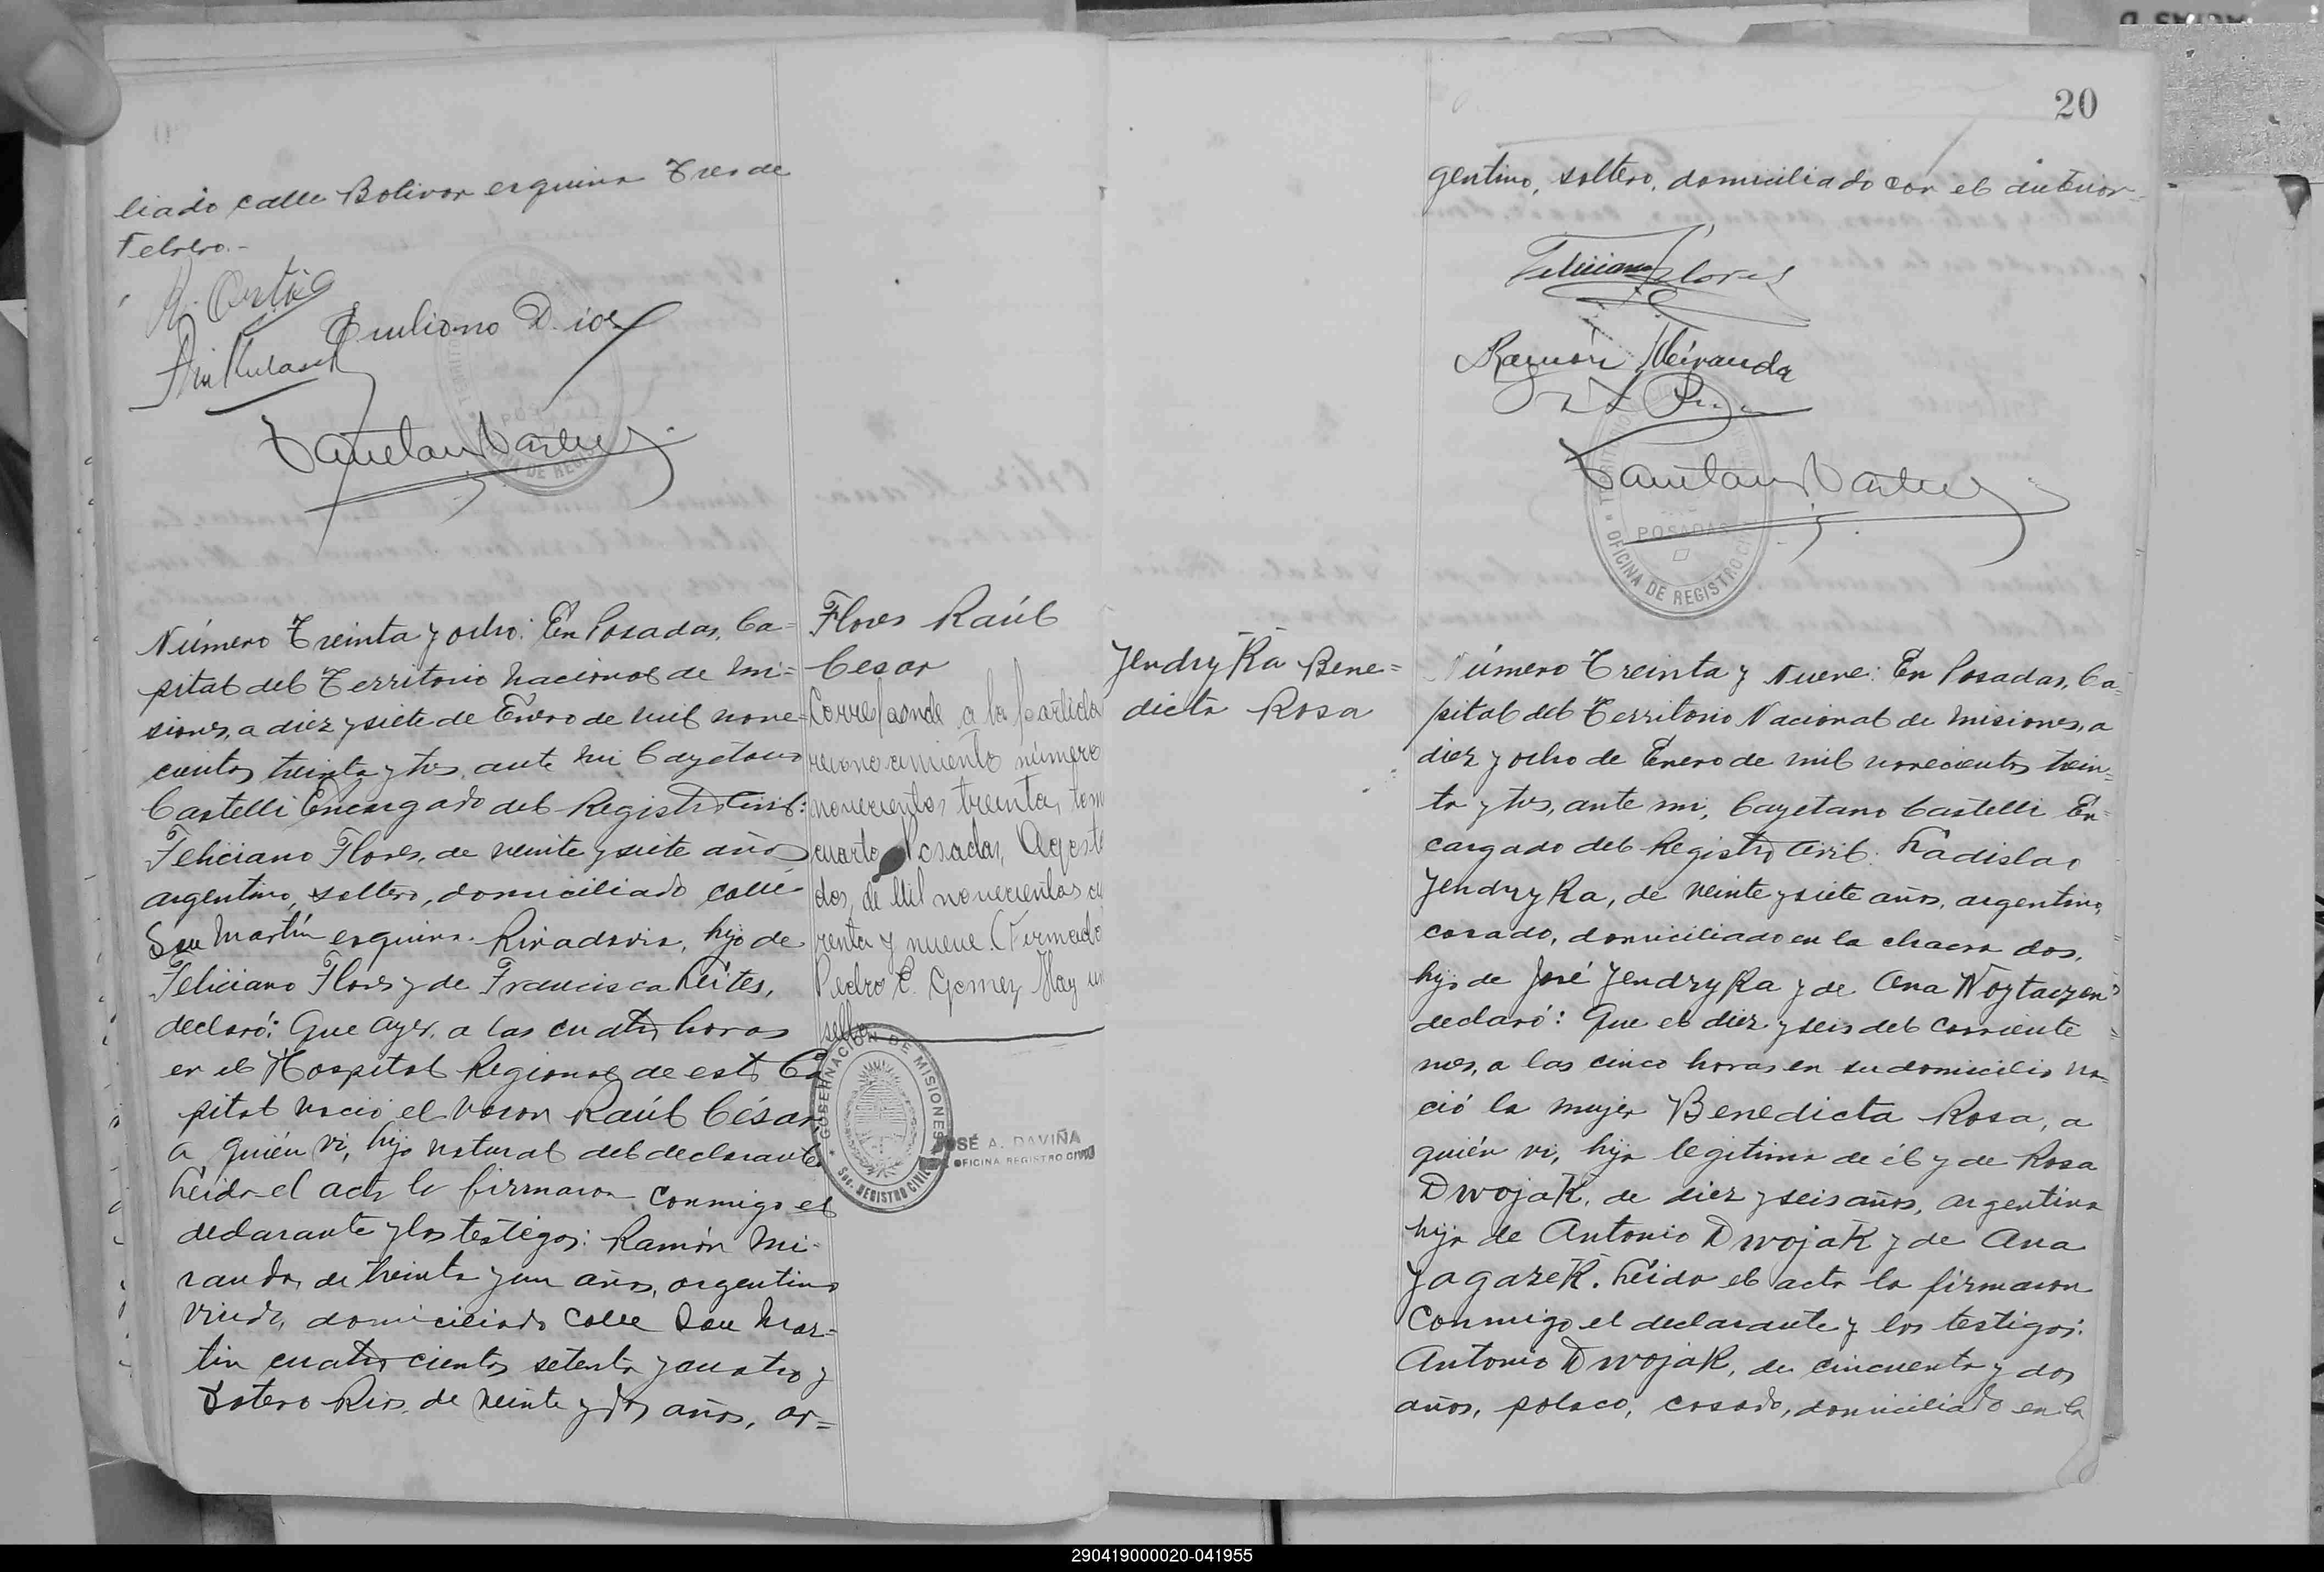 liado calle Bolivar esquina Tres de
Febrero.-
Emiliano D. ios
Número Treinta y ocho: En Posadas, Ca=
pital del Territorio Nacional de Mi=
siones, a diez y siete de Enero de mil nove=
cientos treinta y tres, ante mi Cayetano
Castelli Encargado del Registro Civil:
Feliciano Flores, de veinte y siete años
argentino, soltero, domiciliado calle
San Martín esquina Rivadavia, hijo de
Feliciano Flores y de Francisca Leites,
declaró: Que ayer, a las cuatro horas
en el Hospital Regional de esta Ca
pital nació el varon Raúl César
a quién vi, hijo natural del declarante
Leida el acta la firmaron conmigo el
declarante y los testigos: Ramón Mi-
randa, de treinta y un años, argentino
viudo, domiciliado calle San Mar=
tin cuatrocientos setenta y cuatro y
Sotero Rios, de veinte y dos años, ar=
Flores Raúl
Cesar
Corresponde a la partida
reconocimiento número
novecientos treinta, tom
cuarto Posadas, Agosto
dos, de Mil novecientos cu
renta y nueve. (Firmado
Pedro C. Gomez, Hay un
sello
GOBERNACIÓN DE MISIONES
REGISTRO CIVIL
JOSÉ A. DAVIÑA
OFICINA REGISTRO CIVIL
20
gentino, soltero, domiciliado con el anterior=
Feliciano Flores
Ramón Miranda
POSADAS
OFICINA DE REGISTRO CIVIL
Jendryka Bene=
dicta Rosa
Número Treinta y Nueve: En Posadas, Ca=
pital del Territorio Nacional de Misiones, a
diez y ocho de Enero de mil novecientos trein=
ta y tres, ante mi, Cayetano Castelli En=
cargado del Registro Civil: Ladislao
Jendryka, de veinte y siete años, argentino,
casado, domiciliado en la chacra dos,
hijo de José Jendryka y de Ana Woytaczen
declaró: Que el diez y seis del corriente
mes, a las cinco horas en su domicilio na=
ció la mujer Benedicta Rosa, a
quién vi, hija legitima de él y de Rosa
Dwojak, de diez y seis años, argentina
hija de Antonio Dwojak y de Ana
Jagazek. Leida el acta la firmaron
conmigo el declarante y los testigos:
Antonio Dwojak, de cincuenta y dos
años, polaco, casado, domiciliado en la
290419000020-041955